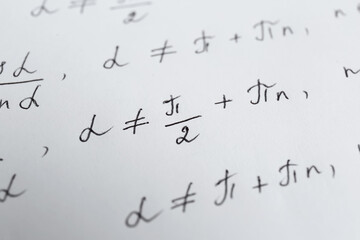 α ≠ π/2
s α / n α , α ≠ π + πn, n
, α ≠ π/2 + πn, n
α α ≠ π + πn,